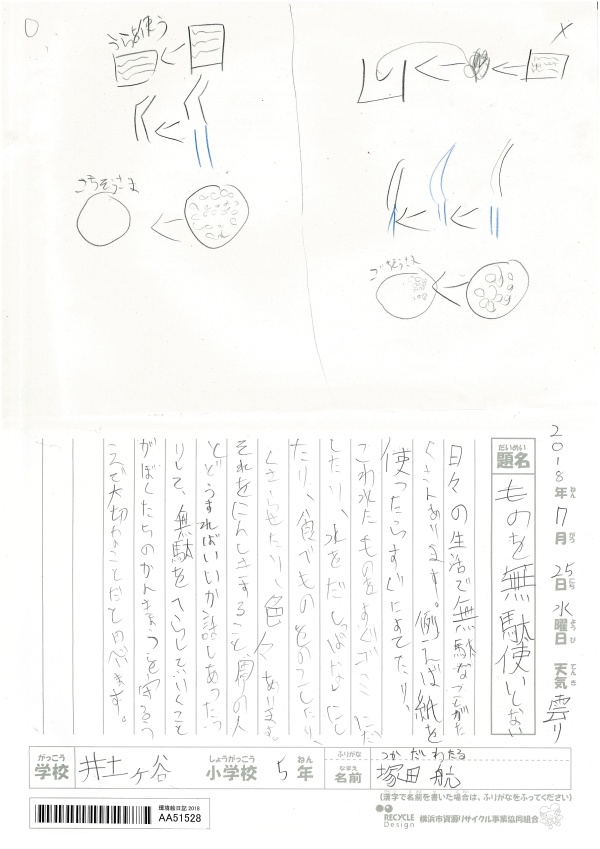 ○
うらも使う
ごちそうさま
×
ごちそうさま
2018年ねん7月がつ25日にち水曜日ようび天気てんき曇り
だいめい
題名
ものを無駄使いしない
日々の生活で無駄なことがた
くさんあります。例えば紙を
使ったらすぐにすてたり、
こわれたものをすぐゴミにだ
したり、水をだしっぱなしにし
たり、食べものをのこしたり、
くさらせたり、色々あります。
それをにんしきすること、周りの人
とどうすればいいか話しあったっ
りして、無駄をへらしていくこと
がぼくたちのかんきょうを守るう
えで大切なことだと思います。
がっこう
学校
井土ヶ谷
しょうがっこう
小学校
5
ねん
年
ふりがな
つかだわたる
なまえ
名前
塚田 航
(漢字で名前を書いた場合は、ふりがなをふってください)
環境絵日記2018
AA51528
RECYCLE Design
横浜市資源リサイクル事業協同組合